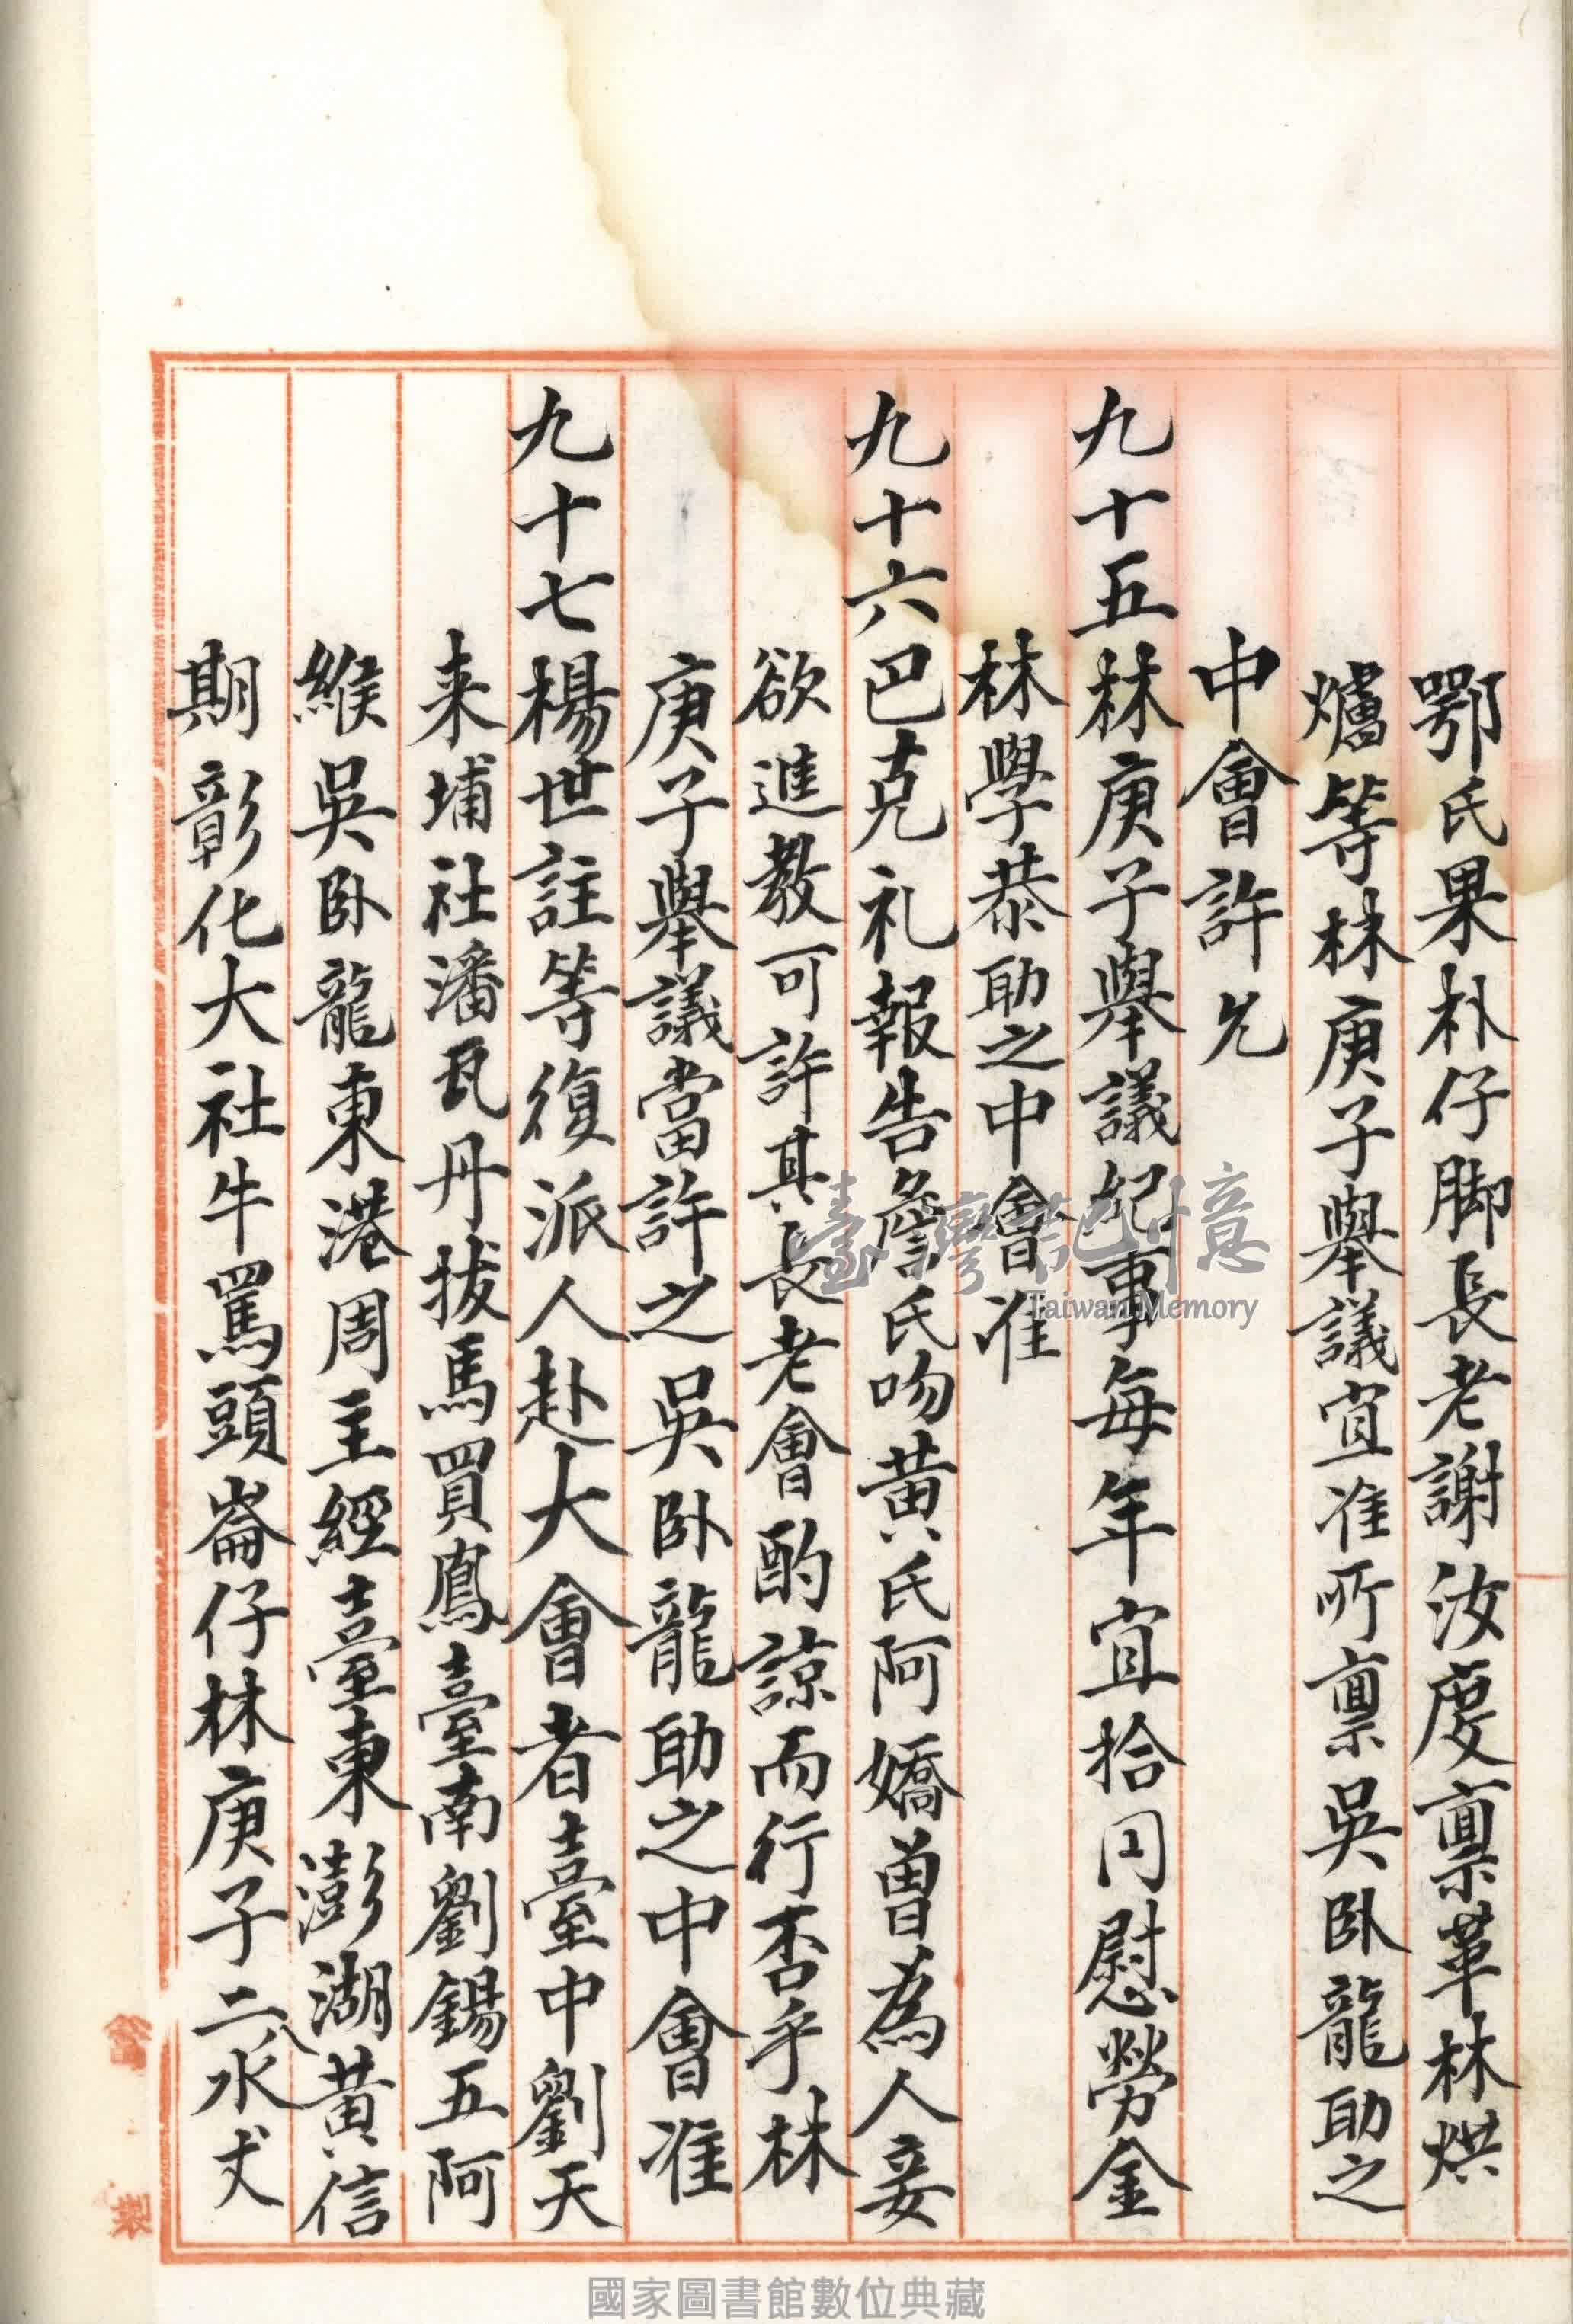 鄂氏果朴仔脚長老謝汝慶禀革林烘
爐等林庚子舉議宜准所禀吳臥龍助之
中會許允
九十五林庚子舉議紀事每年宜拾円慰勞金
林學恭助之中會准
九十六巴克礼報告詹氏吻黄氏阿嬌曽為人妾
欲進教可許其長老會酌諒而行否乎林
庚子舉議當許之吳臥龍助之中會准
九十七楊世註等復派人赴大會者臺中劉天
来埔社潘瓦丹拔馬買鳳臺南劉錫五阿
緱吳臥龍東港周主經臺東澎湖黄信
期彰化大社牛罵頭崙仔林庚子二八水丈
臺灣記憶
Taiwan Memory
國家圖書館數位典藏